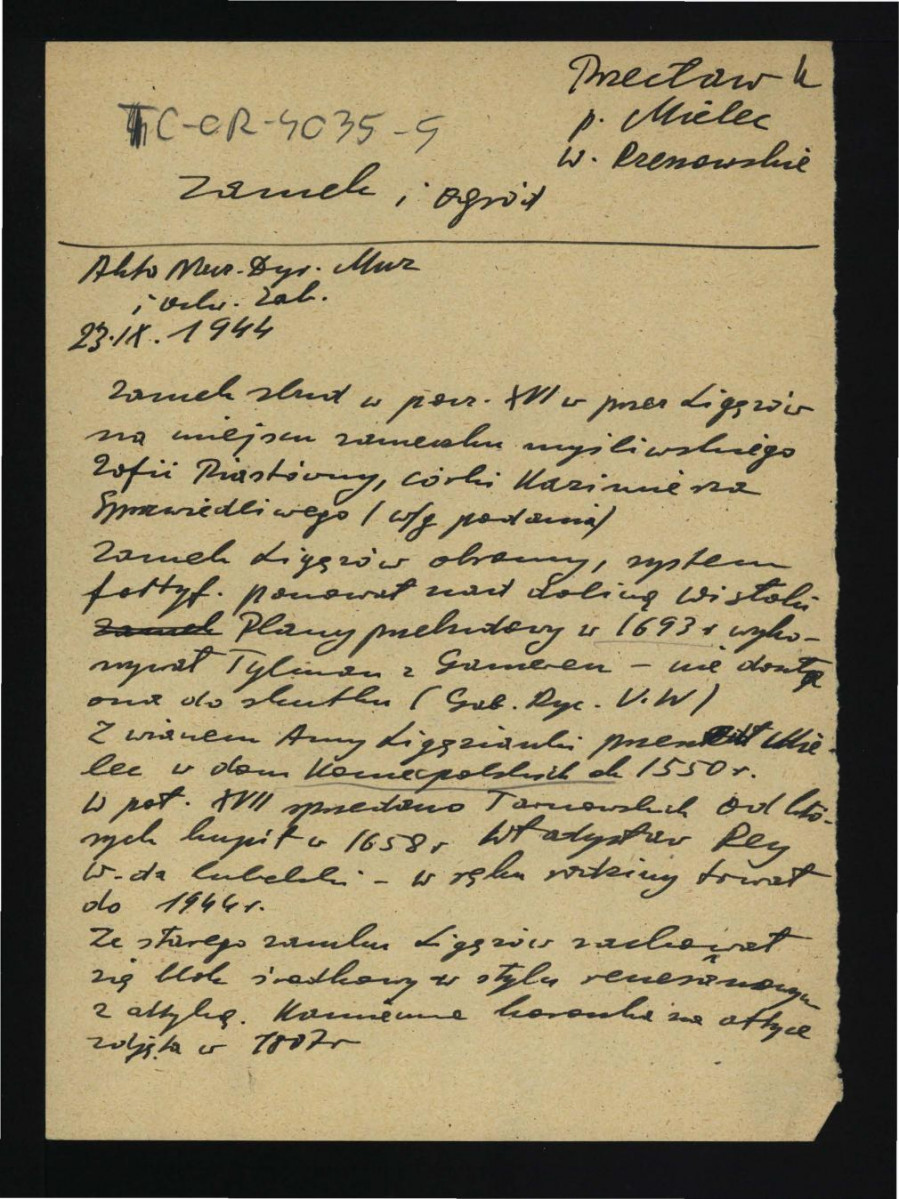 Przecław k
p. Mielec
w. Rzeszowskie
TC-OR-4035-5
Zamek i ogród
Akta Nacz. Dyr. Muz
i Ochr. Zab.
23.IX. 1944
Zamek zbud w pocz. XVII w przez Ligęzów
na miejscu zameczku myśliwskiego
Zofii Piastówny, córki Kazimierza
Sprawiedliwego (w/g podania)
Zamek Ligęzów obronny, system
fortyf. panował nad doliną Wistoki
Plany przebudowy w 1693 r wyko-
nywał Tylman z Gameren – nie doszła
ona do skutku (Gab. Ryc. U.W)
Z wianem Anny Ligęzianki przeszedł Mie-
lec w dom Koniecpolskich ok 1550 r.
W poł. XVII sprzedano Tarnowskich od któ-
rych kupił w 1658 r Władysław Rey
W-da lubelski – w ręku rodziny trwał
do 1944 r.
Ze starego zamku Ligęzów zachował
się blok środkowy w stylu renesansowym
z attyką. Kamienna koronka na attyce
zdjęta w 1807 r